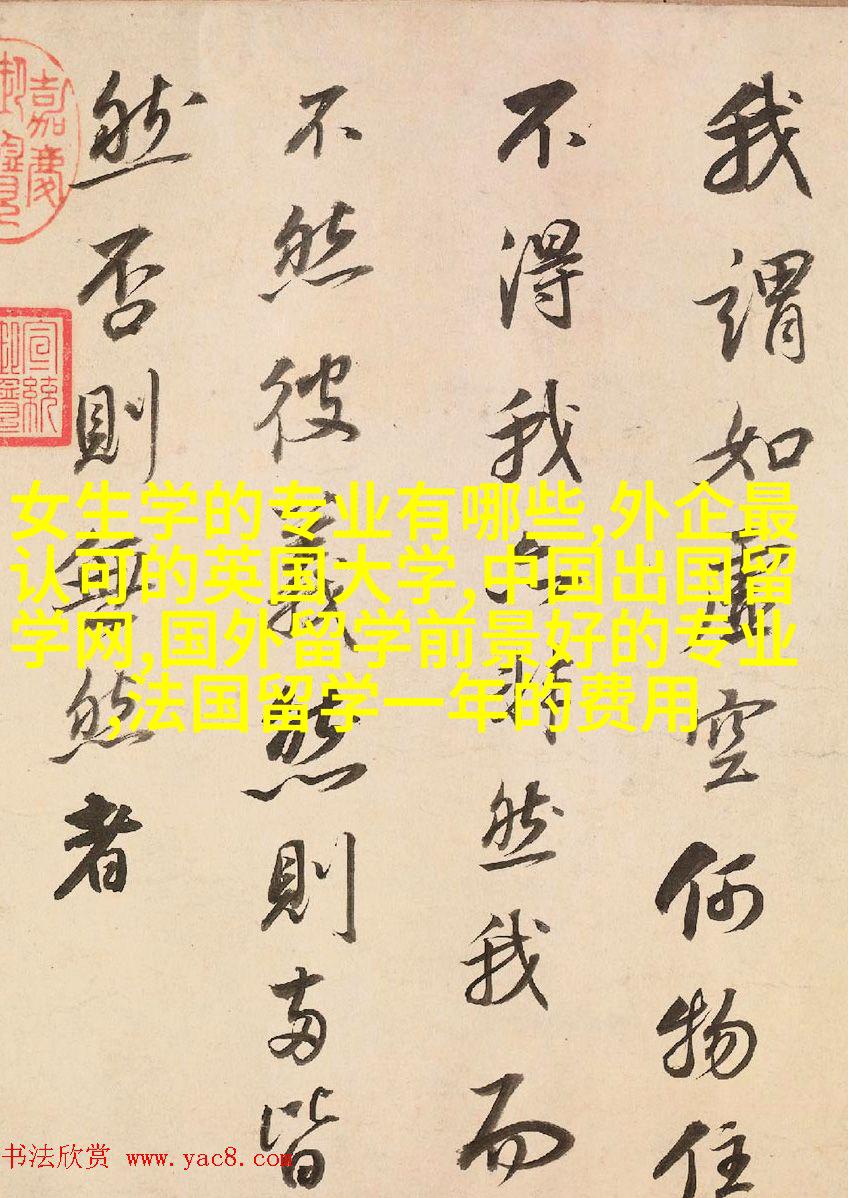 我謂如虛空何物住
不得我然我而
不然彼然則兩皆
然否則無然者
嘉慶
宣統
女生学的专业有哪些,外企最
认可的英国大学,中国出国留
学网,国外留学前景好的专业
,法国留学一年的费用
书法欣赏 www.yac8.com